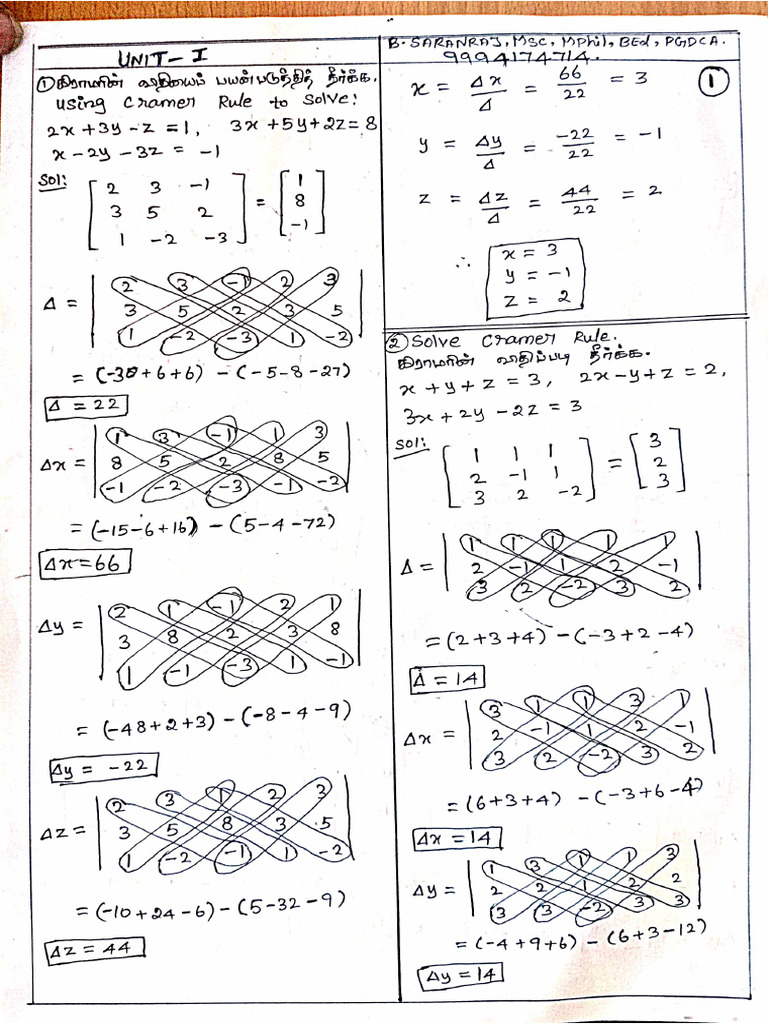 UNIT-I
B. SARANRAJ, MSC, MPhil, BEd, PGDCA.
9994174714.
① கிராமரின் விதியைப் பயன்படுத்தித் தீர்க்க.
Using Cramer Rule to Solve:
2x+3y-z=1, 3x+5y+2z=8
x-2y-3z = -1
Sol:
[2 3 -1] = [1]
[3 5 2] [8]
[1 -2 -3] [-1]
Δ = | 2 3 -1 2 3 |
| 3 5 2 3 5 |
| 1 -2 -3 1 -2 |
= (-30+6+6) - (-5-8-27)
Δ = 22
Δx = | 1 3 -1 1 3 |
| 8 5 2 8 5 |
| -1 -2 -3 -1 -2 |
= (-15-6+16) - (5-4-72)
Δx=66
Δy = | 2 1 -1 2 1 |
| 3 8 2 3 8 |
| 1 -1 -3 1 -1 |
= (-48+2+3) - (-8-4-9)
Δy = -22
Δz = | 2 3 1 2 3 |
| 3 5 8 3 5 |
| 1 -2 -1 1 -2 |
= (-10+24-6) - (5-32-9)
Δz = 44
x = Δx/Δ = 66/22 = 3 ①
y = Δy/Δ = -22/22 = -1
z = Δz/Δ = 44/22 = 2
∴ x = 3
y = -1
z = 2
② Solve Cramer Rule.
கிராமரின் விதிப்படி தீர்க்க.
x+y+z = 3, 2x-y+z = 2,
3x+2y-2z = 3
Sol:
[1 1 1] = [3]
[2 -1 1] [2]
[3 2 -2] [3]
Δ = | 1 1 1 1 1 |
| 2 -1 1 2 -1 |
| 3 2 -2 3 2 |
= (2+3+4) - (-3+2-4)
Δ = 14
Δx = | 3 1 1 3 1 |
| 2 -1 1 2 -1 |
| 3 2 -2 3 2 |
= (6+3+4) - (-3+6-4)
Δx = 14
Δy = | 1 3 1 1 3 |
| 2 2 1 2 2 |
| 3 3 -2 3 3 |
= (-4+9+6) - (6+3-12)
Δy = 14